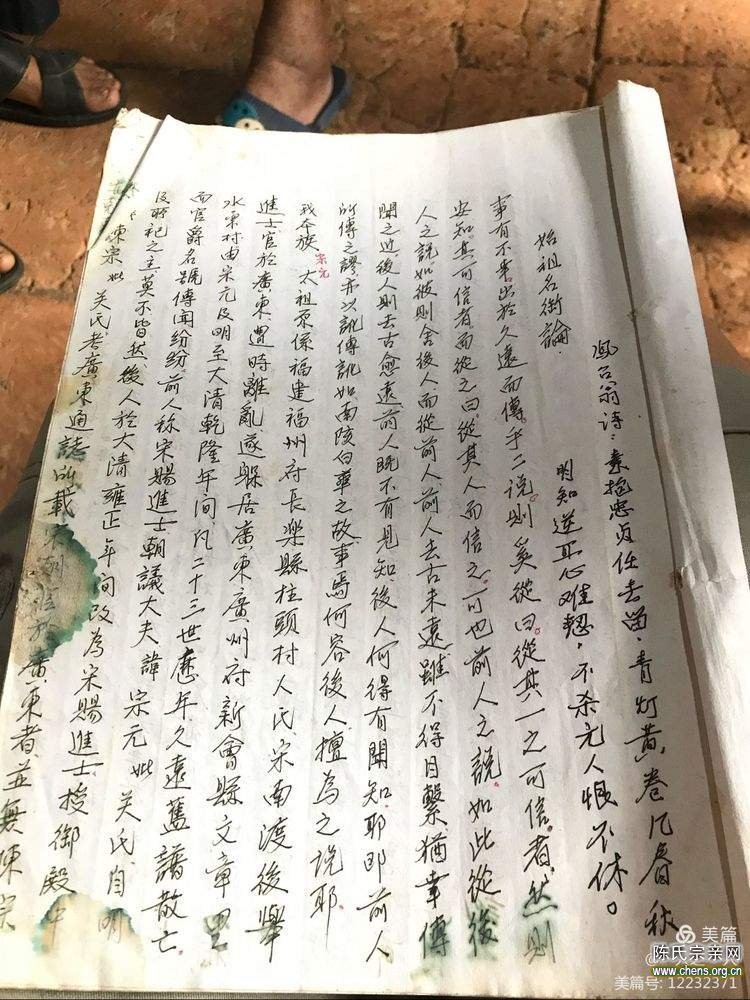 风台翁诗：素抱忠贞任去留，青灯黄卷几春秋
明知逆耳心难，不杀元人恨不休。
始祖名銜論
事有不幸出於久遠而傳于二說則奚從曰從其一之可信者然則
安知其可信者而從之曰從其人而信之可也前人之說如此從後
人之說如彼則舍後人而從前人前人去古未遠雖不得目繫猶幸傳
聞之近後人則去古愈遠前人既不有見知後人何得有聞知耶即前人
所傳之謬亦以訛傳訛如南陔白華之故事焉何容後人擅為之說耶
我本族宗元太祖原係福建福州府長樂縣柱頭村人氏宋南渡後舉
進士官於廣東遭時離亂遂躲居廣東廣州府新會縣文章里
水東村由宋元及明至大清乾隆年间凡二十三世歷年久遠舊譜散亡
而官爵名號傳聞紛紛前人称宋賜進士朝議大夫諱宗元妣关氏自明
及所祀之主莫不皆然後人於大清雍正年间改為宋賜進士授御殿中
陳宗妣关氏考廣東通誌所載於廣東者並無陳宗
美篇
陈氏宗亲网
www.chens.org.cn
美篇号：12232371